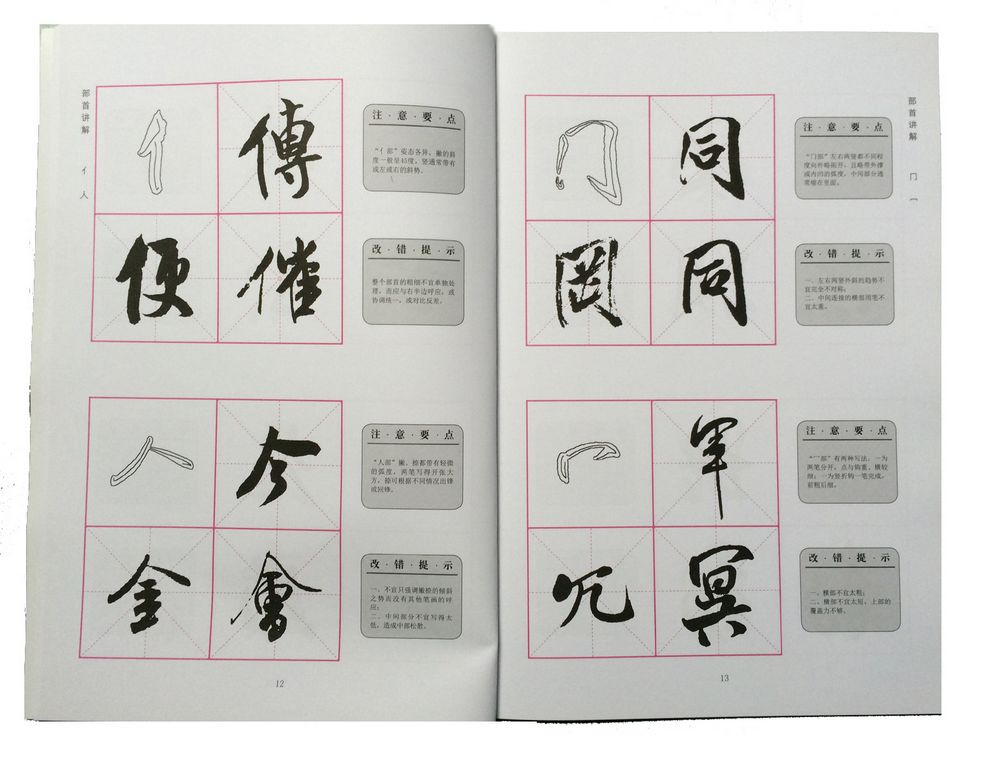 部首讲解
亻 人
亻 傳
便 催
注·意·要·点
“亻部”姿态各异、撇的斜
度一般呈45度，竖通常带有
或左或右的斜势。
改·错·提·示
整个部首的粗细不宜单独处
理，而应与右半边呼应，或
协调统一，或对比反差。
人 今
金 會
注·意·要·点
“人部”撇、捺都带有轻微
的弧度，两笔写得开张大
方，捺可根据不同情况出锋
或回锋。
改·错·提·示
一、不宜只强调撇捺的倾斜
之势而没有其他笔画的呼
应；
二、中间部分不宜写得太
低，造成中部松散。
12
部首讲解
冂 冖
冂 同
岡 同
注·意·要·点
“冂部”左右两竖都不同程
度向外略拓开，且略带外撑
或内凹的弧度，中间部分通
常缩在里面。
改·错·提·示
一、左右两竖外斜的趋势不
宜完全不对称；
二、中间连接的横部用笔不
宜太重。
冖 軍
冗 冥
注·意·要·点
“冖部”有两种写法，一为
两笔分开，点与钩重、横较
细；一为竖折钩一笔完成，
前粗后细。
改·错·提·示
一、横部不宜太粗；
二、横部不宜太短，上部的
覆盖力不够。
13